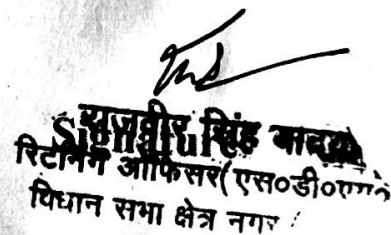 सिंह यादव
Signature
रिटर्निंग ऑफिसर(एस०डी०एम०
विधान सभा क्षेत्र नगर